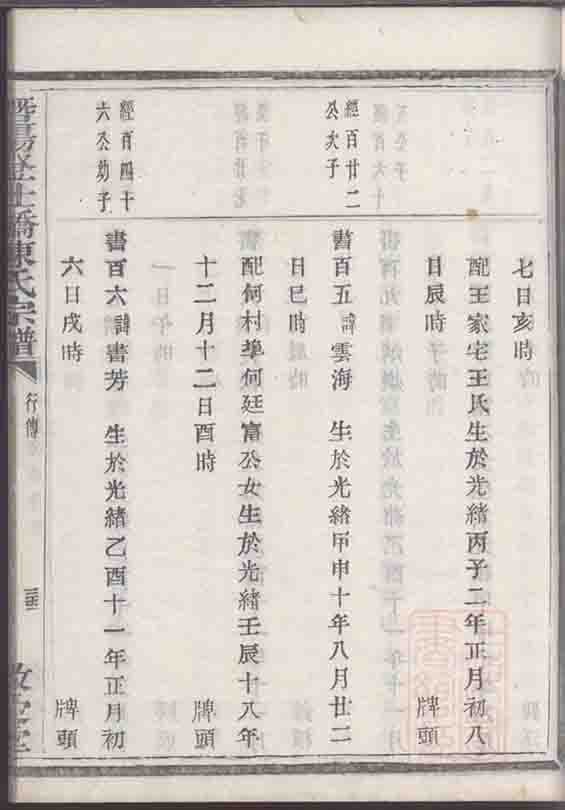 七日亥時
配王家宅王氏生於光緒丙子二年正月初八
日辰時
牌頭
經百廿二
公次子
書百五諱雲海 生於光緒甲申十年八月廿二
日巳時
配何村
何廷富公女生於光緒壬辰十八年
十二月十二日酉時
牌頭
經百四十
六公幼子
書百六諱書芳 生於光緒乙酉十一年正月初
六日戌時
牌頭
橋陳氏宗譜
行傳